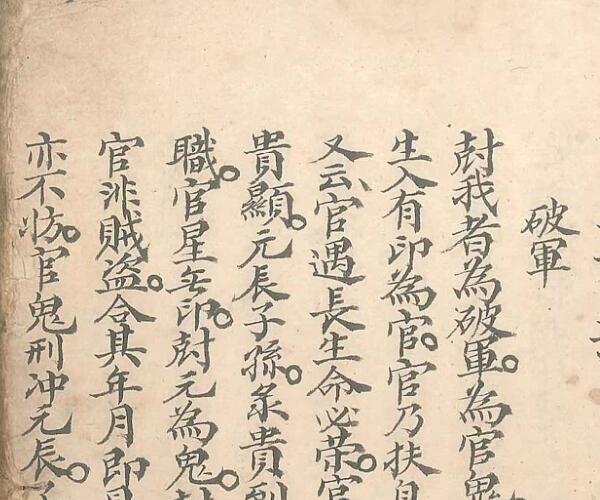 破軍
尅我者為破軍。為官鬼
生入有印為官。官乃扶
又云、官遇長生命必荣。官
貴顯。元辰子孫。系貴
職。官星无印。尅元為鬼。
官誹賊盗。合其年月即
亦不妨。官鬼刑冲元辰。